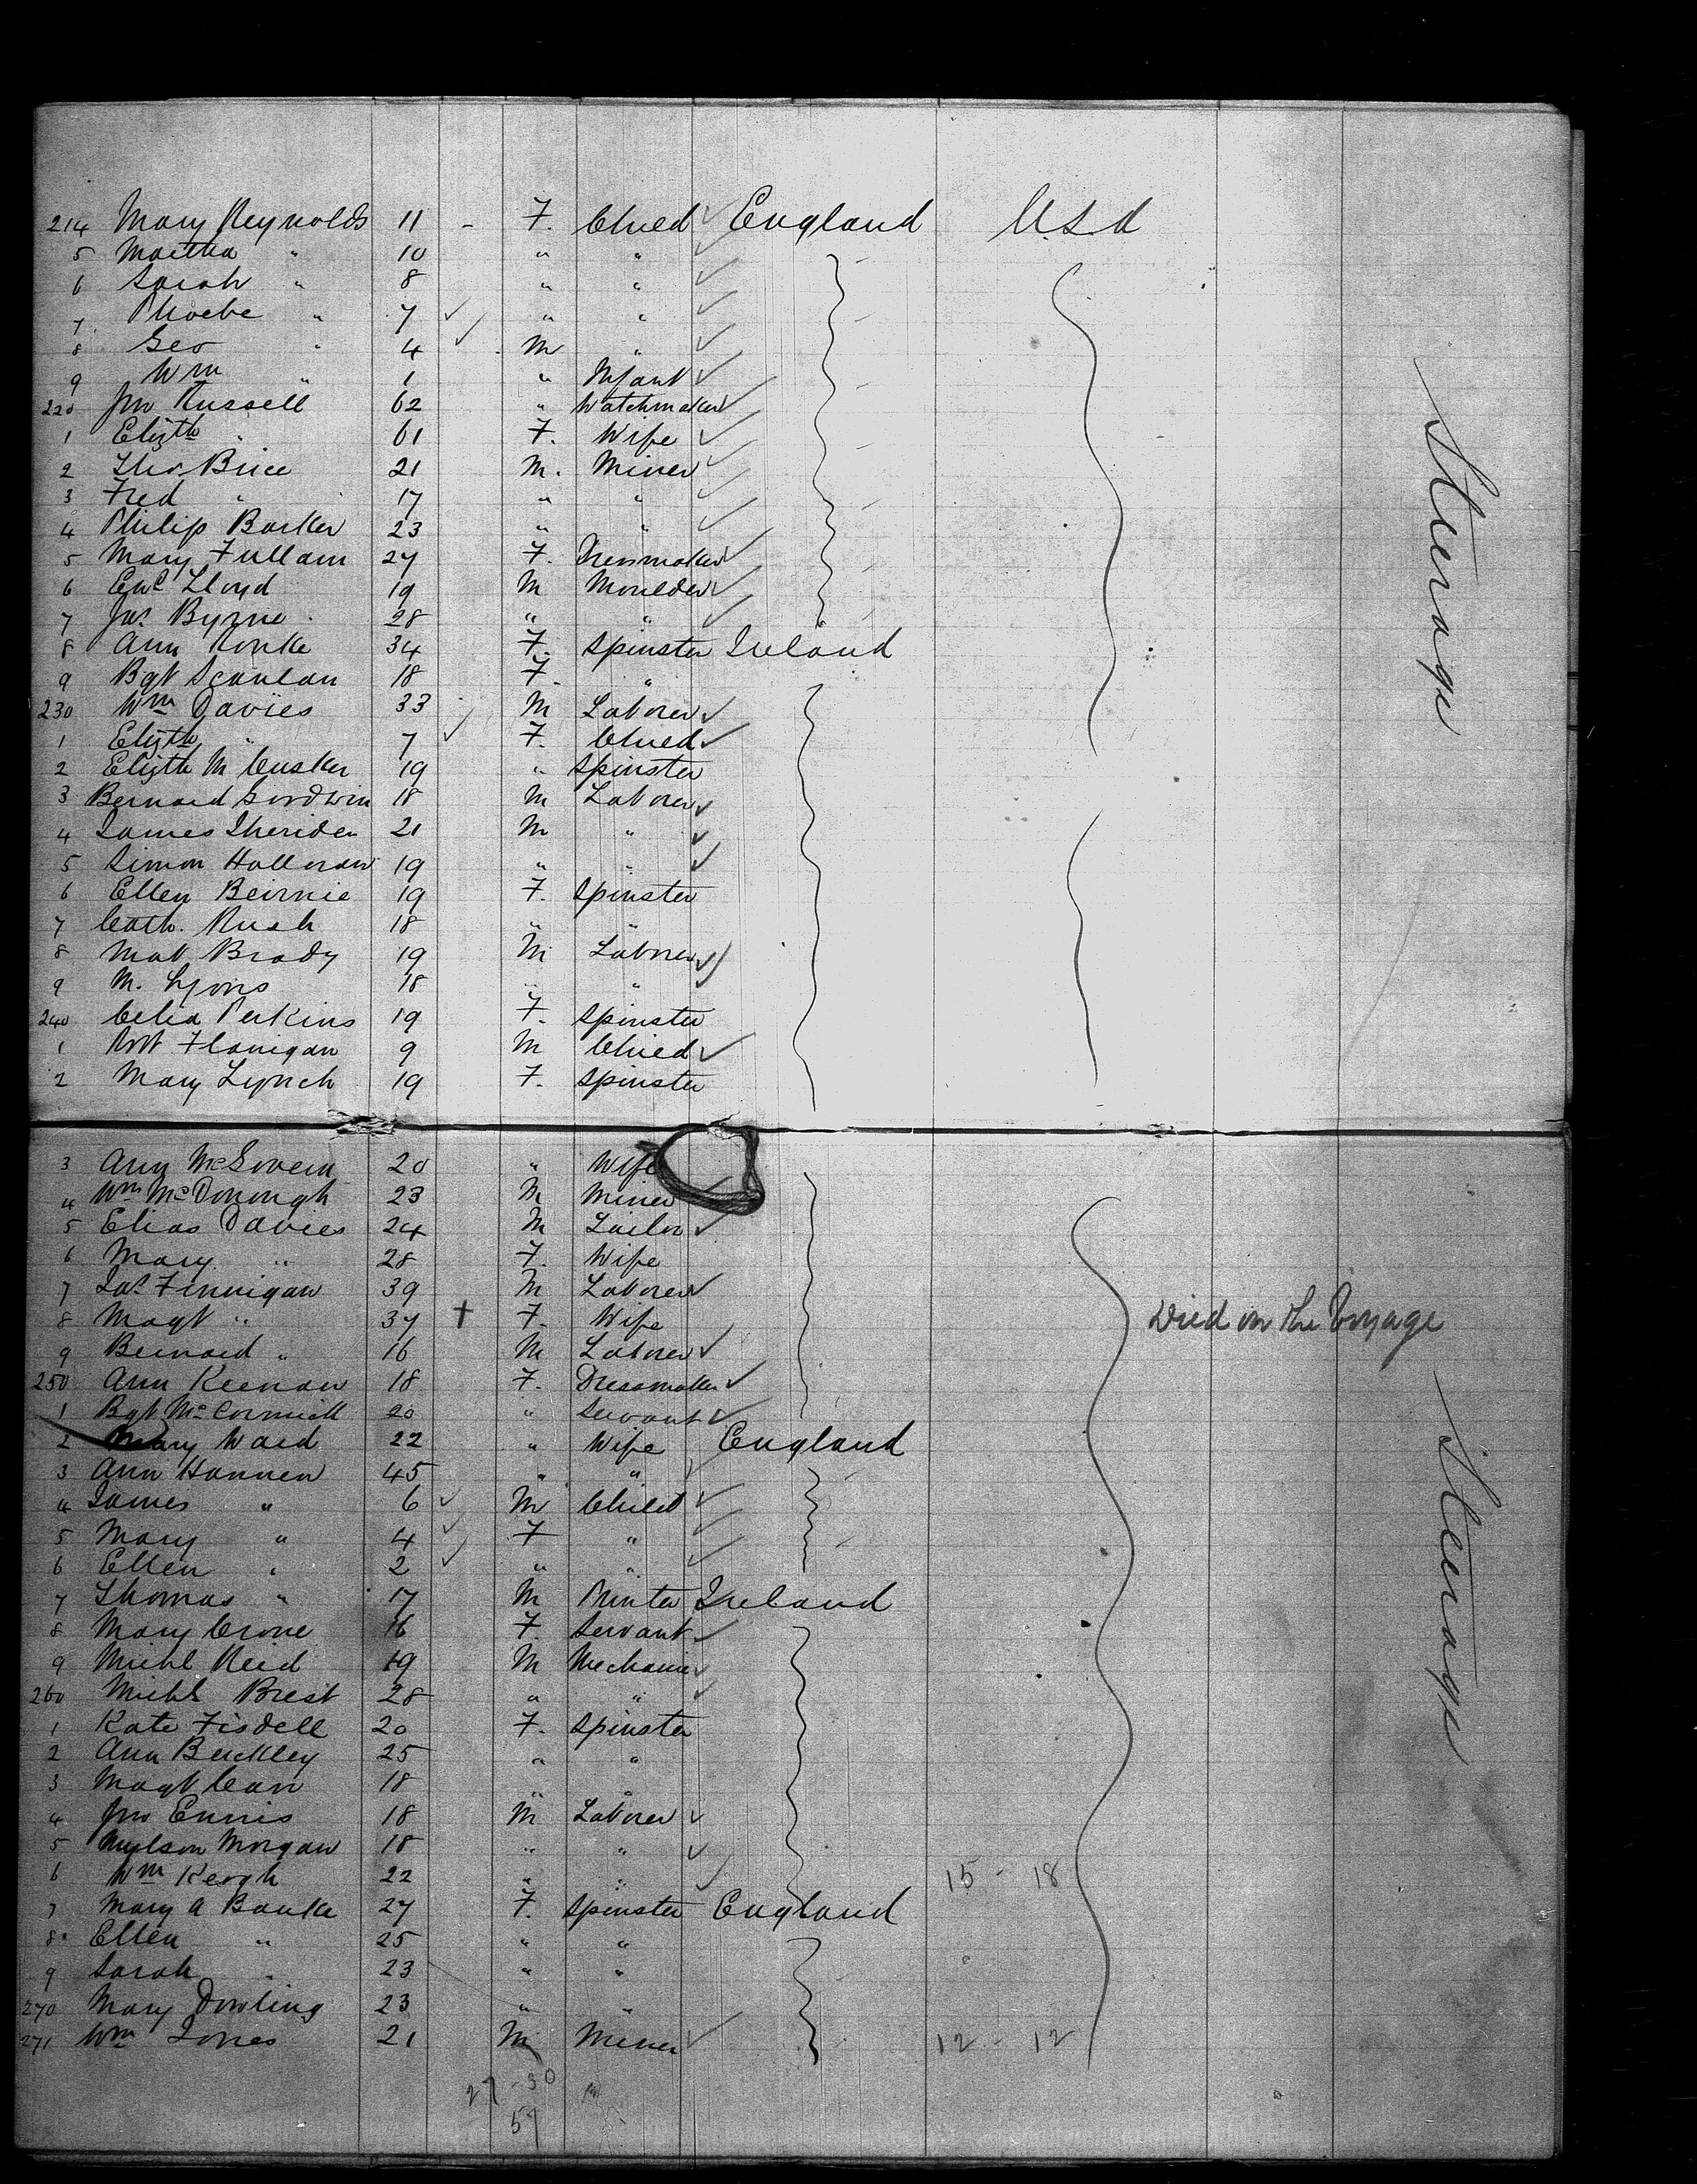 214 Mary Reynolds 11 - F. Child England USA
5 Martha " 10 " "
6 Sarah " 8 " "
7 Phoebe " 7 " "
8 Geo " 4 M "
9 Wm " 1 " Infant
220 Jno Russell 62 " Watchmaker
1 Elizth " 61 F. Wife
2 Thos Brice 21 M. Miner
3 Fred " 17 " "
4 Philip Barker 23 " "
5 Mary Fullam 27 F. Dressmaker
6 Lloyd 19 M Moulder
7 Jas Byrne 28 " "
8 Ann 34 F. Spinster Ireland
9 Bgt Scanlan 18 F. "
230 Wm Davies 33 M Laborer
1 Elizth " 7 F. Child
2 Elizth McCusker 19 " Spinster
3 Bernard Goodwin 18 M Laborer
4 James Sheriden 21 M "
5 Simon Halloran 19 " "
6 Ellen Beirnie 19 F. Spinster
7 Cath. Rush 18 " "
8 Mat Brady 19 M Laborer
9 M. Lyons 18 " "
240 Celia Perkins 19 F. Spinster
1 Robt Flanigan 9 M Child
2 Mary Lynch 19 F. Spinster
Steerage
3 Ann McGovern 20 " Wife
4 Wm McDonough 23 M Miner
5 Elias Davies 24 M Tailor
6 Mary " 28 F. Wife
7 Jas Finnigan 39 M Laborer
8 Magt " 37 † F. Wife Died on the Voyage
9 Bernard " 16 M Laborer
250 Ann Keenan 18 F. Dressmaker
1 Bgt McCormick 20 " Servant
2 Mary Ward 22 " Wife England
3 Ann Hannen 45 " "
4 James " 6 M Child
5 Mary " 4 F "
6 Ellen " 2 " "
7 Thomas " 17 M Printer Ireland
8 Mary Crone 16 F. Servant
9 Michl Reid 19 M Mechanic
260 Michl Brest 28 " "
1 Kate Fisdell 20 F. Spinster
2 Ann Buckley 25 " "
3 Magt 18 " "
4 Jno Ennis 18 M Laborer
5 Morgan 18 " "
6 Wm Keogh 22 " " 15 - 18
7 Mary A Banke 27 F. Spinster England
8 Ellen " 25 " "
9 Sarah " 23 " "
270 Mary Dowling 23 " "
271 Wm Jones 21 M Miner 12 - 12
Steerage
27 - 30
57